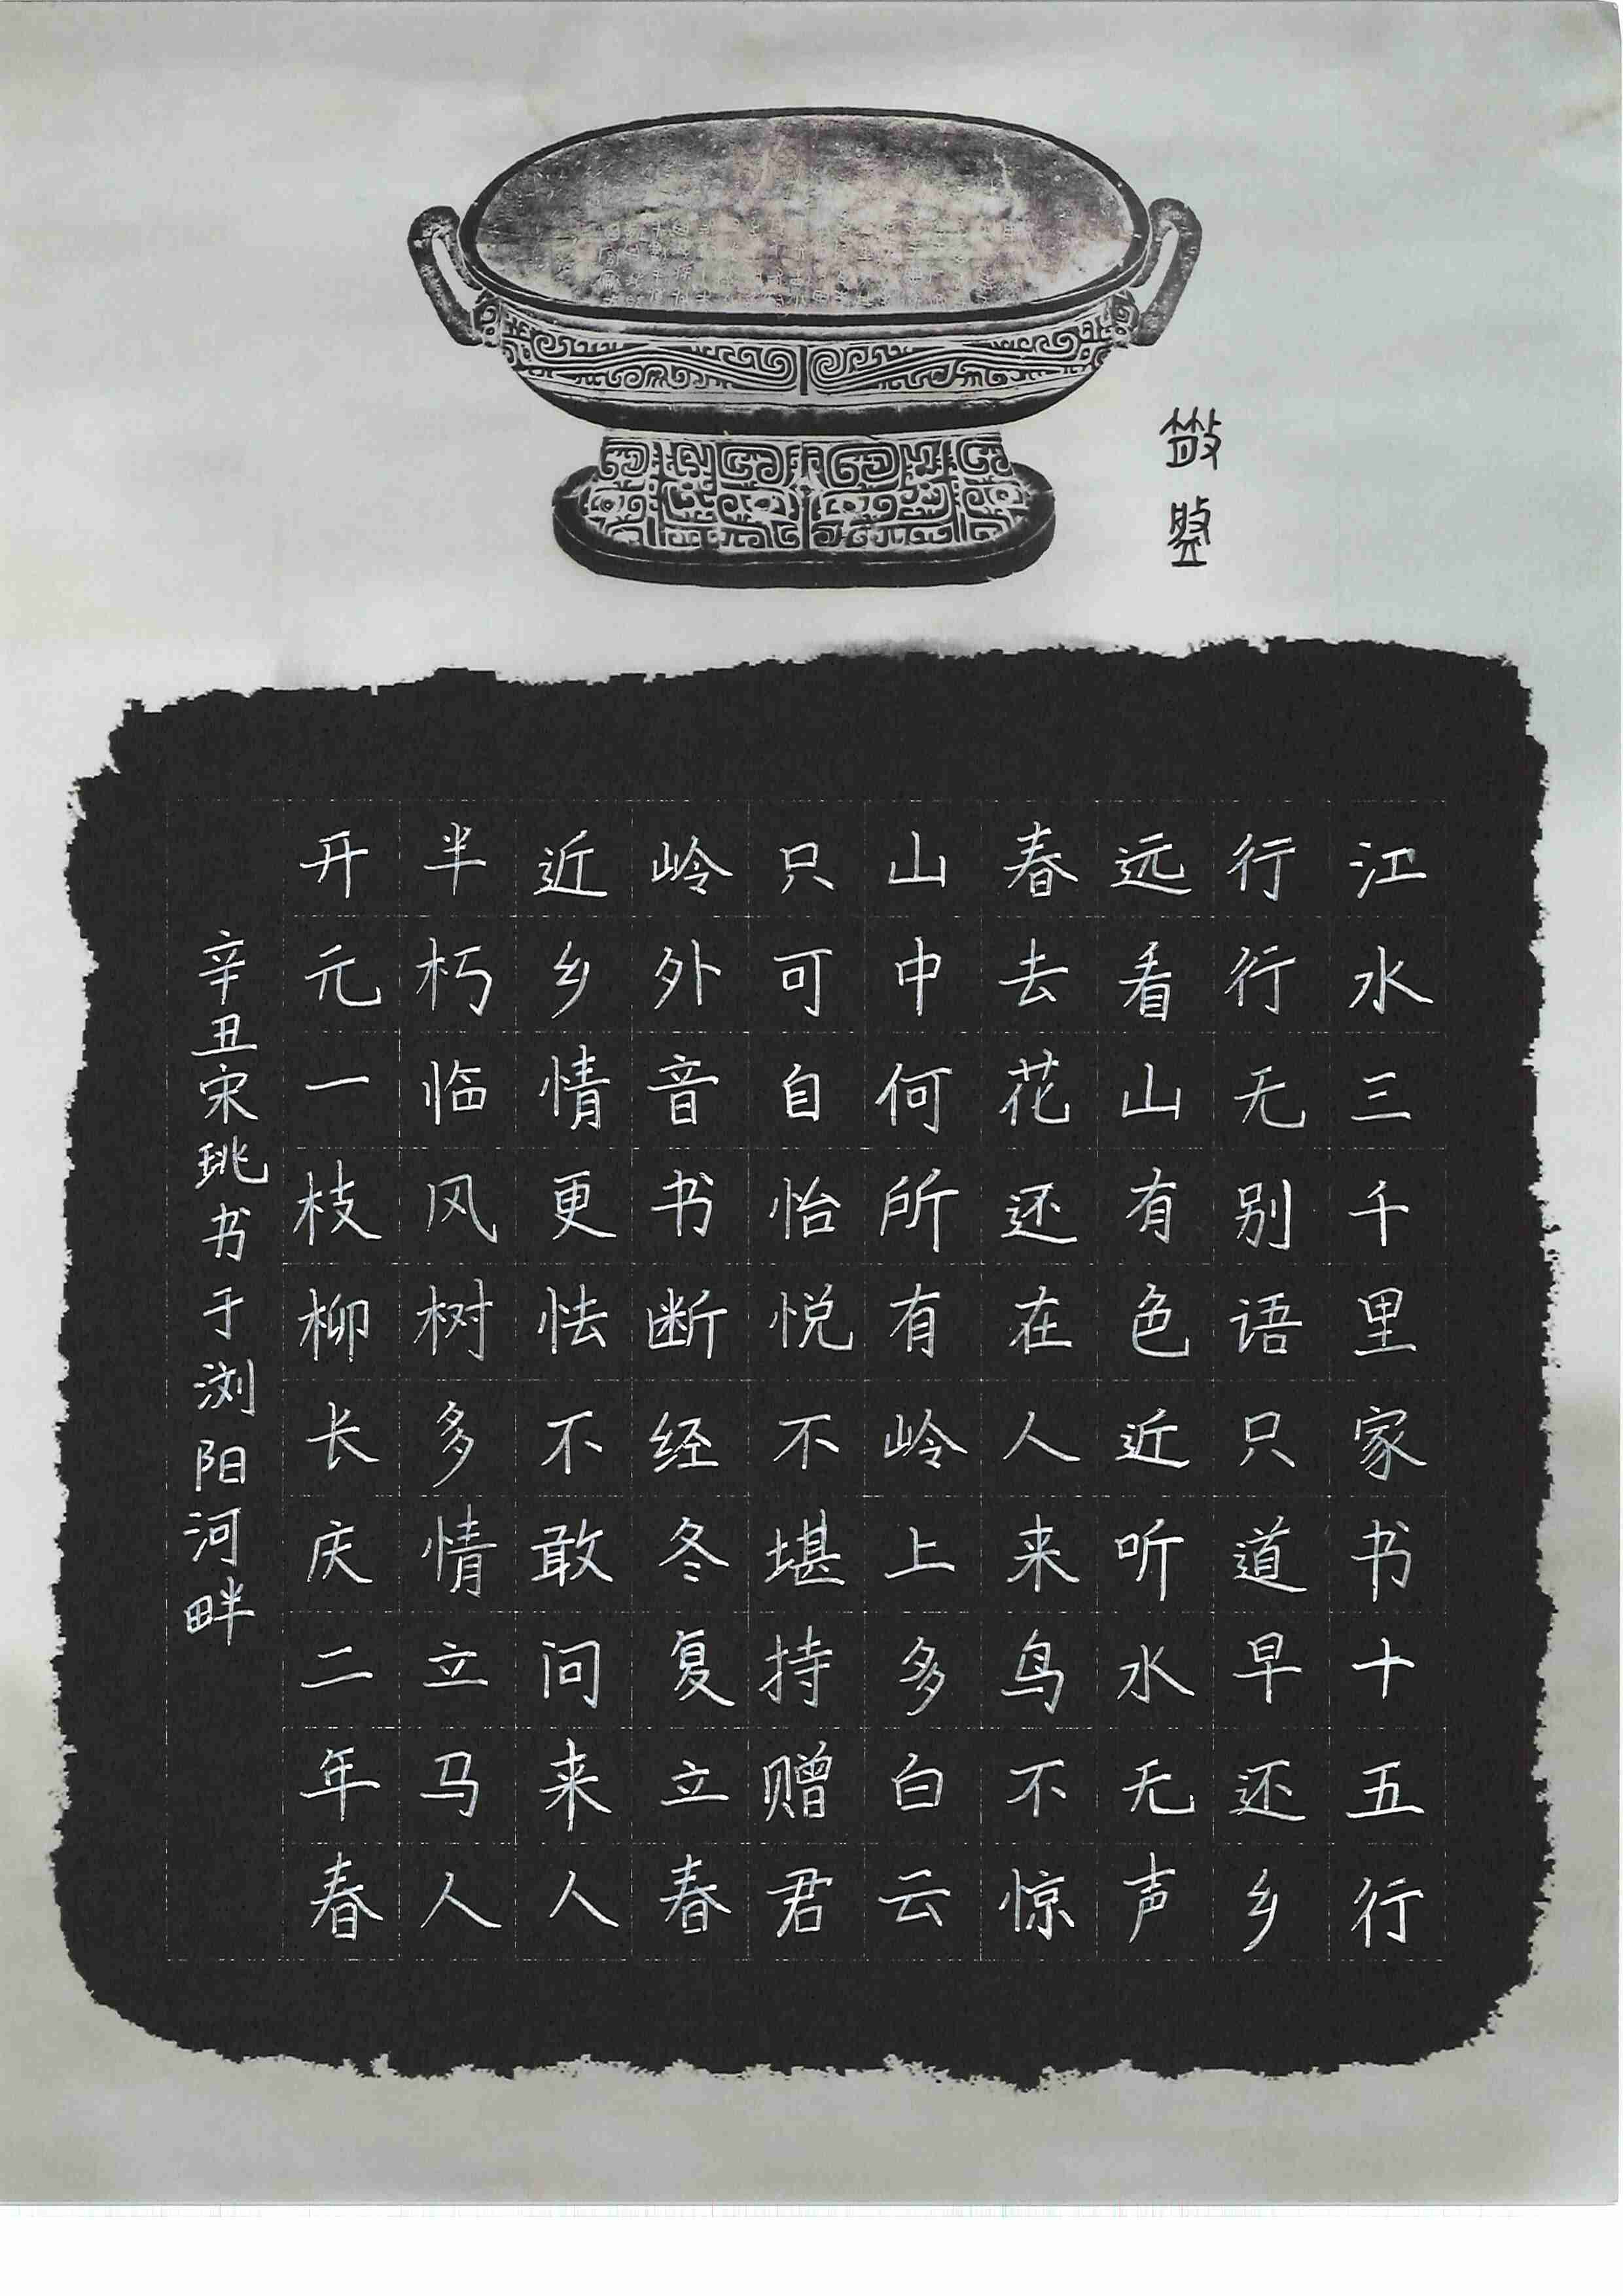 江水三千里家书十五行
行行无别语只道早还乡
远看山有色近听水无声
春去花还在人来鸟不惊
山中何所有岭上多白云
只可自怡悦不堪持赠君
岭外音书断经冬复立春
近乡情更怯不敢问来人
半朽临风树多情立马人
开元一枝柳长庆二年春
辛丑宋珧书于浏阳河畔